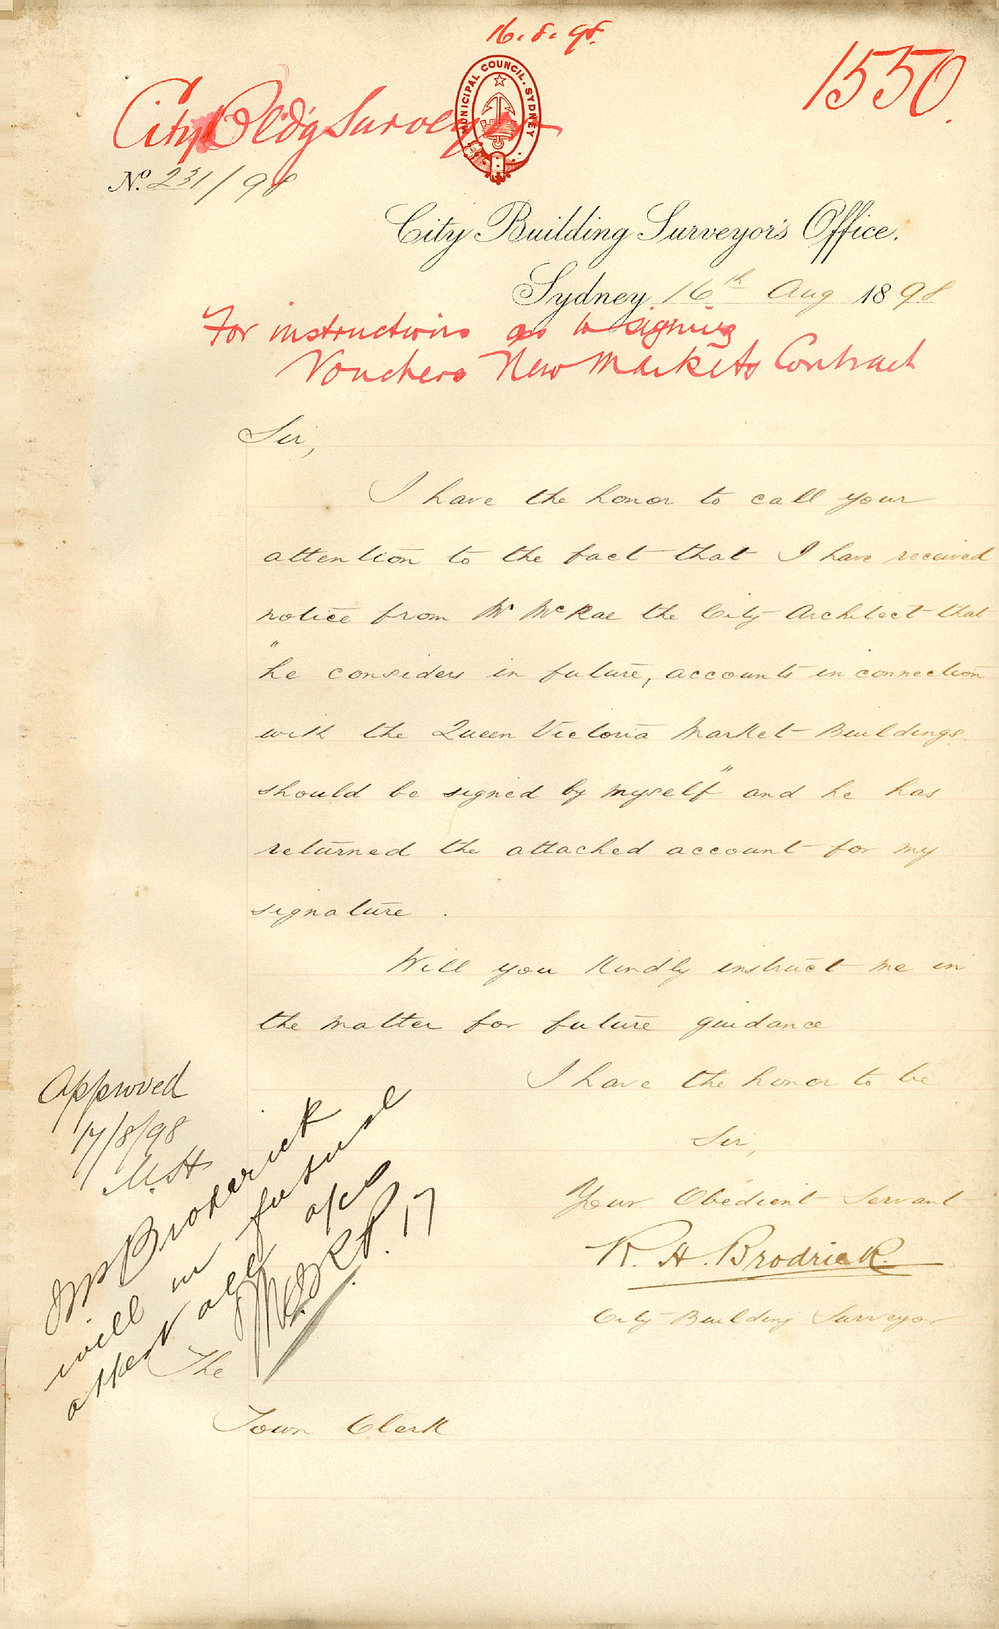 16.8.98.
1550.
MUNICIPAL COUNCIL. SYDNEY
City Bldg Surveyor
No. 231/98
City Building Surveyor's Office.
Sydney, 16th Aug 1898
For instructions as to signing
Vouchers New Markets Contract
Sir,
I have the honor to call your
attention to the fact that I have received
notice from Mr McRae the City Architect that
"he considers in future, accounts in connection
with the Queen Victoria Market Buildings
should be signed by myself" and he has
returned the attached account for my
signature.
Will you kindly instruct me in
the matter for future guidance
I have the honor to be
Sir,
Your Obedient Servant
R. H. Brodrick.
City Building Surveyor
Approved
17/8/98
M.H.
Mr Broderick
will in future
attest all a/cs
17
The
Town Clerk